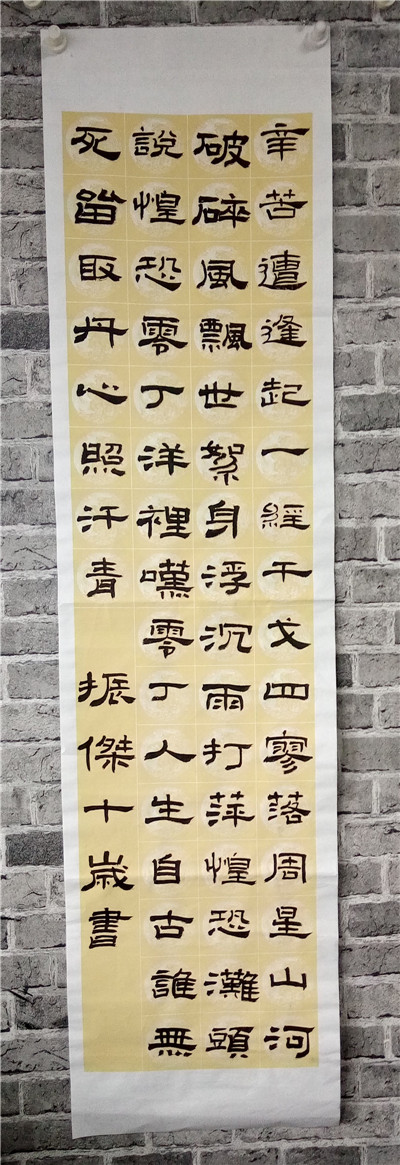 辛苦遭逢起一經干戈四寥落周星山河
破碎風飄世絮身浮沉雨打萍惶恐灘頭
說惶恐零丁洋裡嘆零丁人生自古誰無
死留取丹心照汗青
振傑十歲書